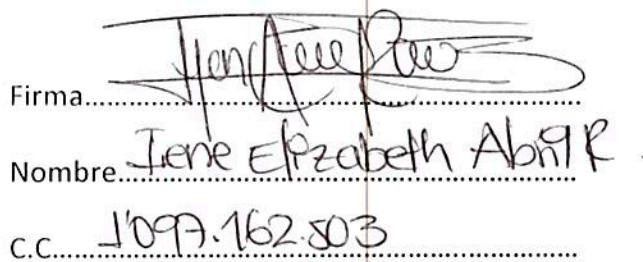 Firma
Nombre Irene Elizabeth Abril R.
C.C. 1'097.162.503